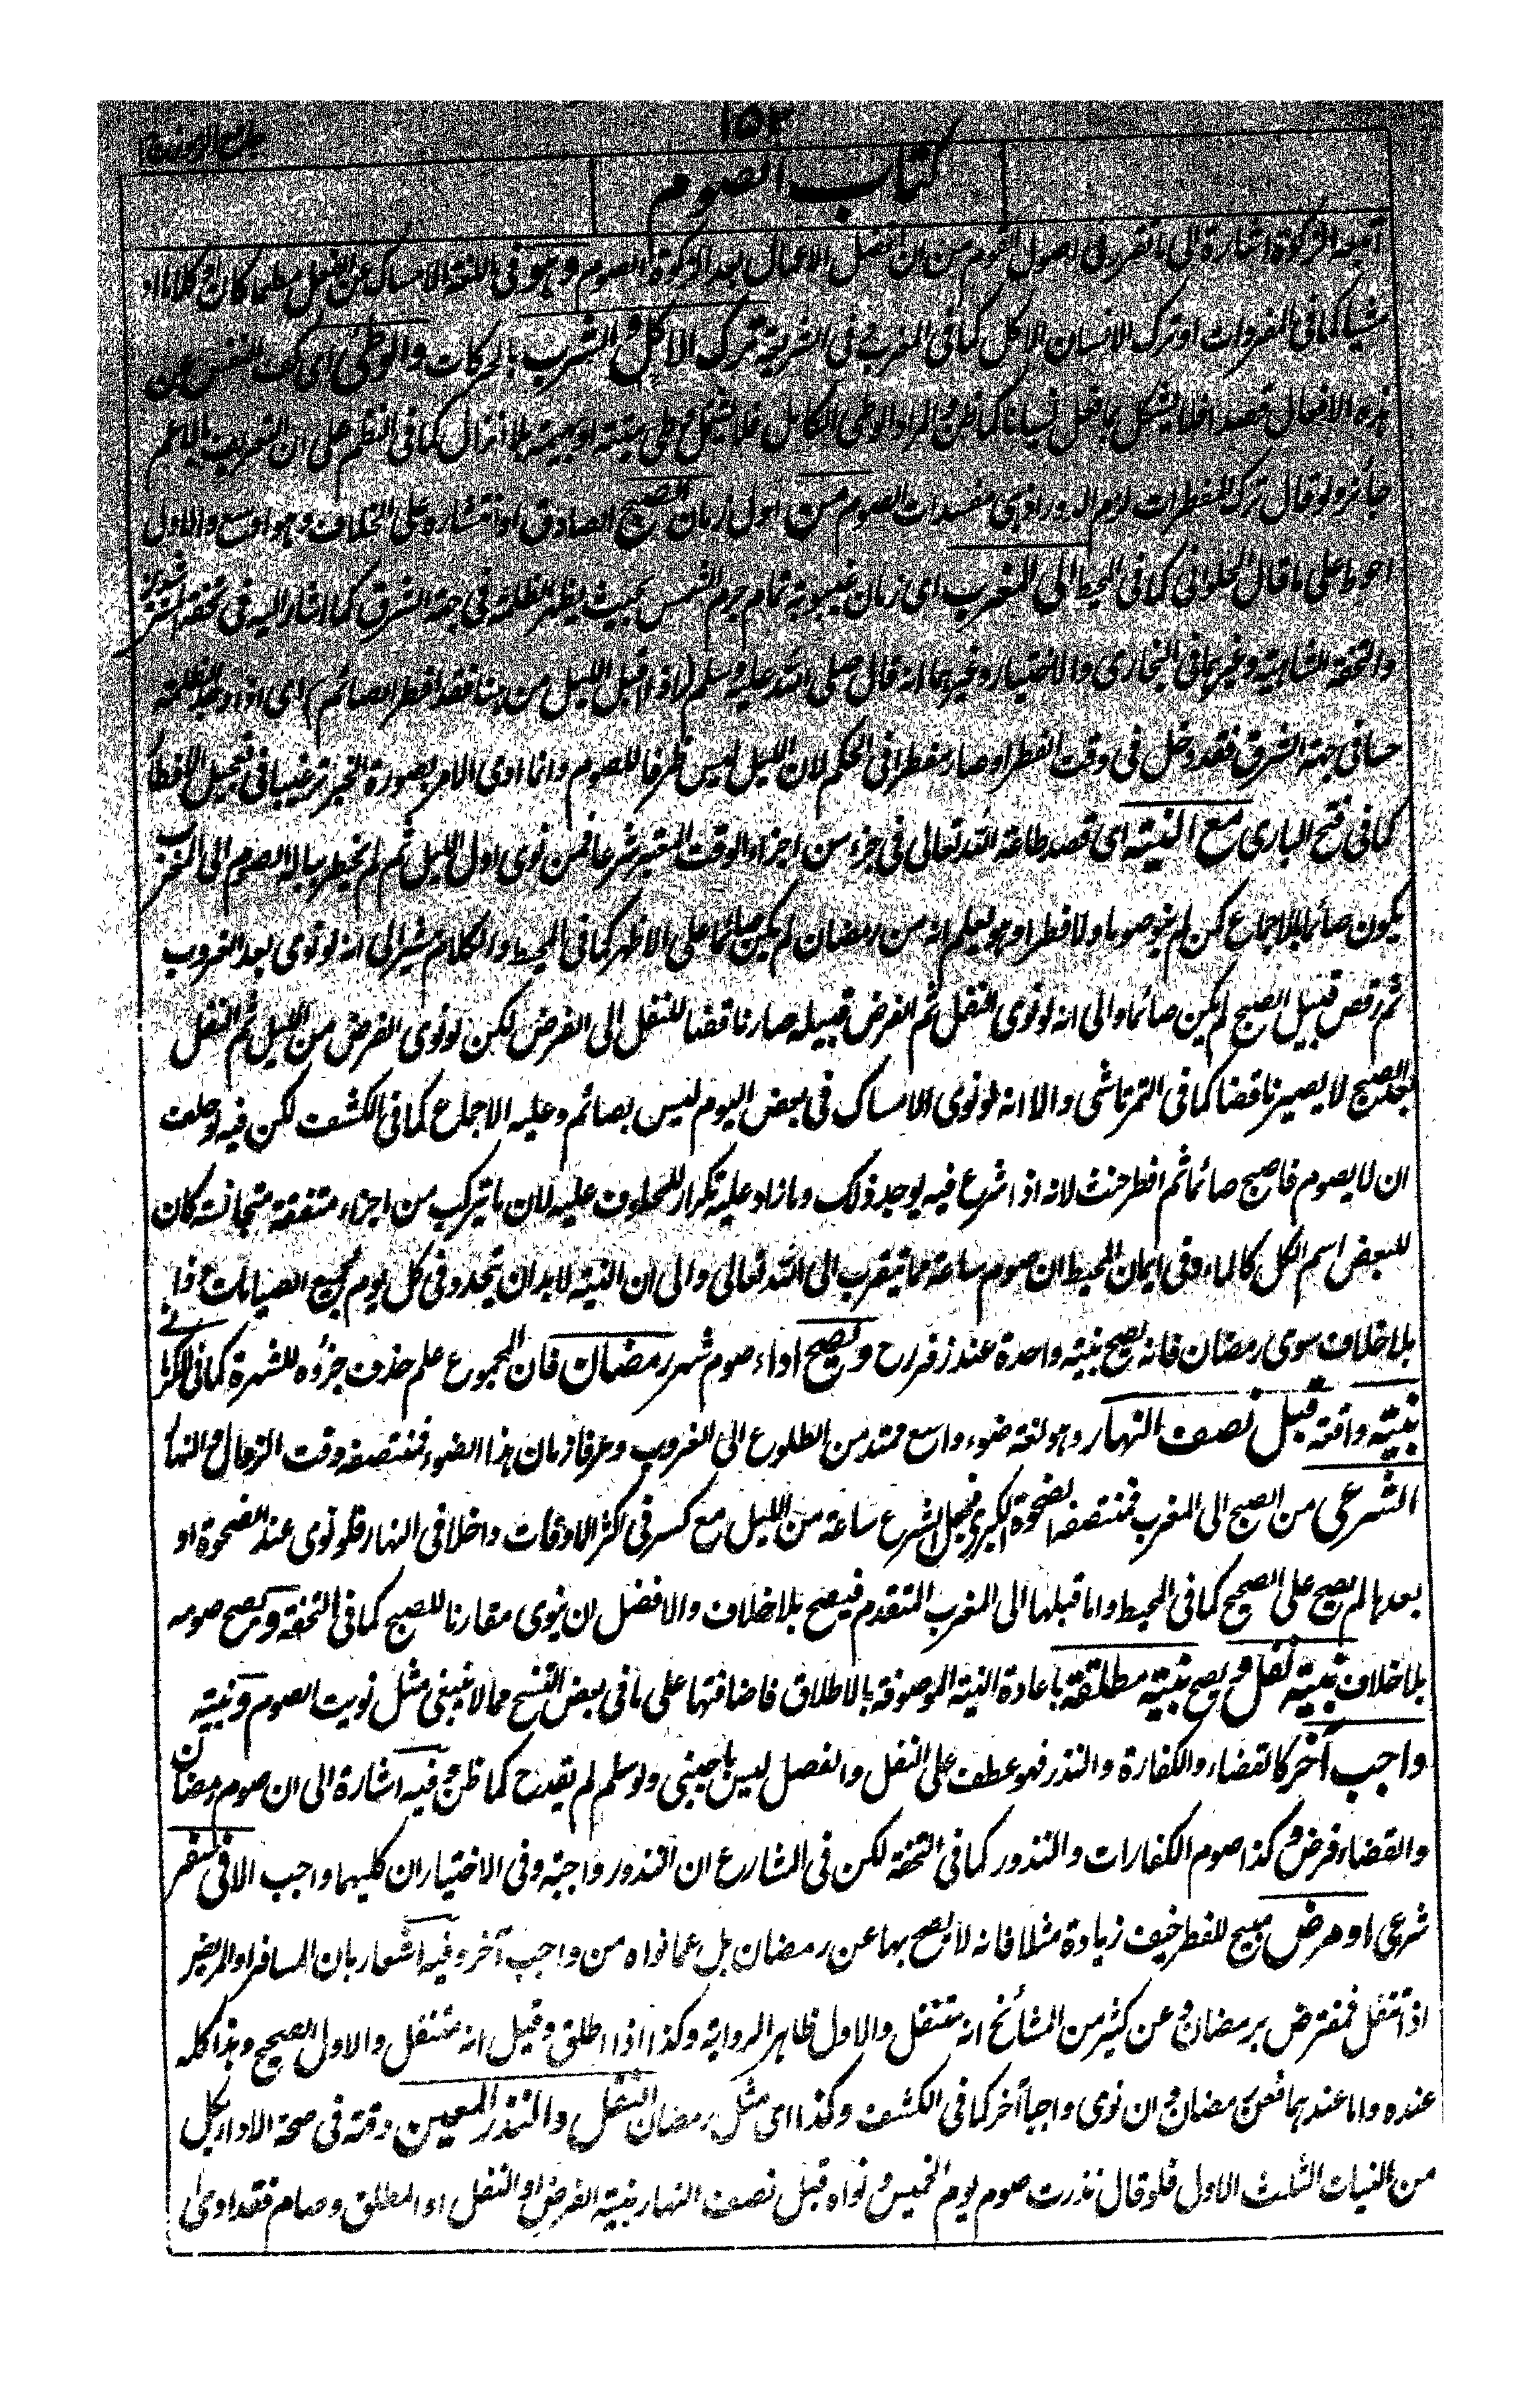 ١٥٣
جامع الرموز
كتاب الصوم
اتبعه الزكوة اشارة الى ما تقرر فى اصول القوم من ان افضل الاعمال بعد الزكوة الصوم وهو فى اللغة الامساك عن الفعل مطعما كان او كلاما او
مشيا كما فى المفردات او ترك الانسان الاكل كما فى المغرب وفى الشريعة ترك الاكل و الشرب بالحركات والوطئ اى كف النفس عن
هذه الافعال قصدا فلا يشكل بما فعل نسيانا كما ظن والمراد الوطى الكامل فلا يشكل على ميتة او بهيمة بلا انزال كما فى النظم على ان التعريف بالاعم
جائز ولو قال ترك المفطرات لزم الدور اذ هى مفسدات الصوم من اول زمان الصبح الصادق او انتشاره على الخلاف وهو اوسع والاول
احوط على ما قال الحلوانى كما فى المحيط الى المغرب اى زمان غيبوبة تمام جرم الشمس بحيث يظهر الظلمة فى جهة الشرق كما اشار اليه فى تحفة
والتحفة الشاهية وغيرهما فى البخارى والاختيار وغيرهما انه قال صلى الله عليه وسلم (اذا اقبل الليل من هنا فقد افطر الصائم) اى اذا وجد الظلمة
حسا فى جهة الشرق فقد دخل فى وقت الفطر او صار مفطرا فى الحكم لان الليل ليس ظرفا للصوم وانما ادى الامر بصورة الخبر ترغيبا فى تعجيل الافطار
كما فى فتح البارى مع النية اى قصد طاعة الله تعالى فى جزء من اجزاء الوقت المعتبر شرعا فمن نوى اول الليل ثم لم يخطر بباله الصوم الى المغرب
يكون صائما بالاجماع كمن لم ينو صوما ولا فطرا وهو يعلم انه من رمضان لم يكن صائما على الاظهر كما فى المحيط والكلام مشير الى انه لو نوى بعد الغروب
ثم رفض قبيل الصبح لم يكن صائما والى انه لو نوى النفل ثم الفرض قبيله صار ناقضا للنفل الى الفرض لكن لو نوى الفرض من الليل ثم النفل
بعد الصبح لا يصير ناقضا كما فى التمرتاشى والا انه لو نوى الامساك فى بعض اليوم ليس بصائم وعليه الاجماع كما فى الكشف لكن فيه لو حلف
ان لا يصوم فاصبح صائما ثم افطر حنث لانه اذا شرع فيه يوجد ذلك وما زاد عليه تكرار للمحلوف عليه لان ما يتركب من اجزاء متفقة متجانسة كان
للبعض اسم الكل كالماء وفى ايمان المحيط ان صوم ساعة مما يتقرب الى الله تعالى والى ان النية لا بد ان يتجدد فى كل يوم لجميع الصيامات
بلا خلاف سوى رمضان فانه يصح بنية واحدة عند زفر رح ويصح اداء صوم شهر رمضان فان المجموع علم حذف جزؤه للشهرة كما فى
بنية واقعة قبل نصف النهار وهو لغة ضوء واسع ممتد من الطلوع الى الغروب وعرفا زمان هذا الضوء فمنتصفه وقت الزوال والنهار
الشرعى من الصبح الى المغرب فمنتصفه الضحوة الكبرى فجعل الشرع ساعة من الليل مع كسر فى اكثر الاوقات داخلا فى النهار فلو نوى عند الضحوة او
بعدها لم يصح على الصحيح كما فى المحيط واما قبلها الى المغرب المتقدم فيصح بلا خلاف والافضل ان ينوى مقارنا للصبح كما فى التحفة ويصح صومه
بلا خلاف بنية نفل و يصح بنية مطلقة باعادة النية الموصوفة بالاطلاق فاضافتها على ما فى بعض النسخ مما لا ينبغى مثل نويت الصوم وبنية
واجب آخر كالقضاء والكفارة والنذر فهو عطف على النفل والفصل ليس باجنبى ولو سلم لم يقدح كما ظن وفيه اشارة الى ان صوم رمضان
والقضاء فرض وكذا صوم الكفارات والنذور كما فى التحفة لكن فى الشارع ان النذور واجبة وفى الاختيار ان كليهما واجب الا فى سفر
شرعى او مرض مبيح للفطر خيف زيادة مثلا فانه لا يصح بها عن رمضان بل عما نواه من واجب آخر وفيه اشعار بان المسافر او المريض
اذا تنفل فمفترض برمضان وعن كثير من المشائخ انه متنفل والاول ظاهر الرواية وكذا اذا اطلق وقيل انه متنفل والاول الصحيح وهذا كله
عنده واما عندهما فعن رمضان وان نوى واجبا آخر كما فى الكشف وكذا اى مثل رمضان النفل والنذر المعين وقته فى صحة الاداء بكل
من النيات الثلث الاول فلو قال نذرت صوم يوم الخميس ونواه قبل نصف النهار بنية الفرض او النفل او المطلق وصام فقد ادى